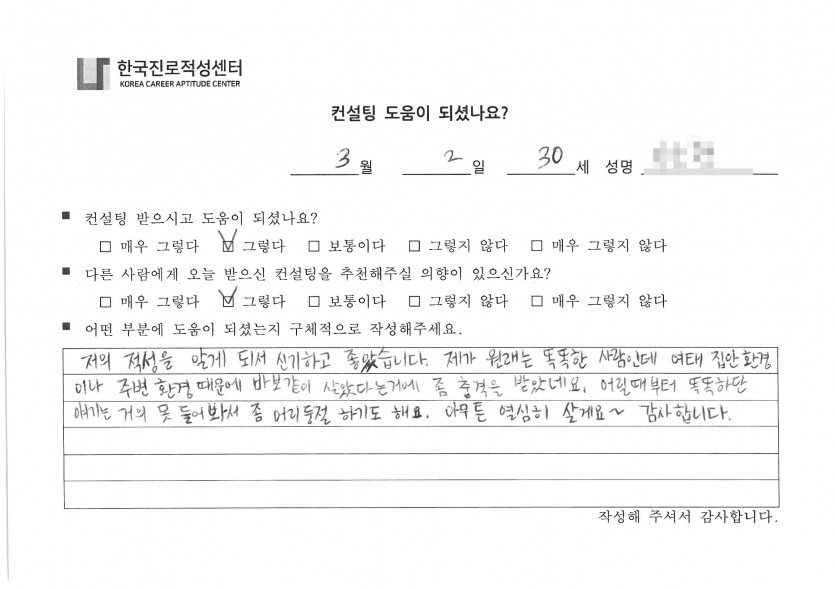 한국진로적성센터
KOREA CAREER APTITUDE CENTER
컨설팅 도움이 되셨나요?
3월 2일 30세 성명
■ 컨설팅 받으시고 도움이 되셨나요?
□ 매우 그렇다 ☑ 그렇다 □ 보통이다 □ 그렇지 않다 □ 매우 그렇지 않다
■ 다른 사람에게 오늘 받으신 컨설팅을 추천해주실 의향이 있으신가요?
□ 매우 그렇다 ☑ 그렇다 □ 보통이다 □ 그렇지 않다 □ 매우 그렇지 않다
■ 어떤 부분에 도움이 되셨는지 구체적으로 작성해주세요.
저의 적성을 알게 되서 신기하고 좋았습니다. 제가 원래는 똑똑한 사람인데 여태 집안환경
이나 주변 환경때문에 바보같이 살았다는거에 좀 충격을 받았네요. 어릴때부터 똑똑하단
얘기는 거의 못 들어봐서 좀 어리둥절 하기도 해요. 아무튼 열심히 살게요~ 감사합니다.
작성해 주셔서 감사합니다.